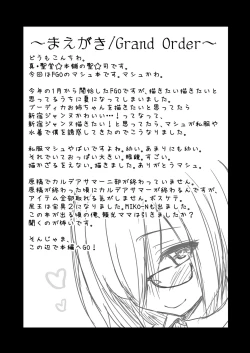 ～まえがき/Grand Order～
どうもこんちわ。
真・聖堂☆本舗の聖☆司です。
今回はFGOのマシュ本です。マシュかわ。
今年の1月から開始したFGOですが、描きたい描きたいと
思ってるうちに夏になってしまいました。
ブーディカお姉ちゃんを描きたいと思ってたら
新宿ジャンヌかわいい…!ってなって、
新宿ジャンヌ描きたい!と思ってたら、マシュが私服や
水着で僕を誘惑してきたのでこうなりました。
私服マシュやばいですよね。幼い。あまりにも幼い。
それでいておっぱい大きい。眼鏡。すごい。
描かざるをえない。描きました。ありがとうマシュ。
原稿でカルデアサマー二部が終わっていません。
原稿が終わった頃にカルデアサマーが終わるんですが、
アイテム全部取れる気がしません。ボスケテ。
尾王は宝具2になりました。MIKO-Nも出ました。
この本が出る頃の僕、頼光ママは引きましたか?
聞くのが怖いです。
そんじゃま、
この辺で本編へGO!